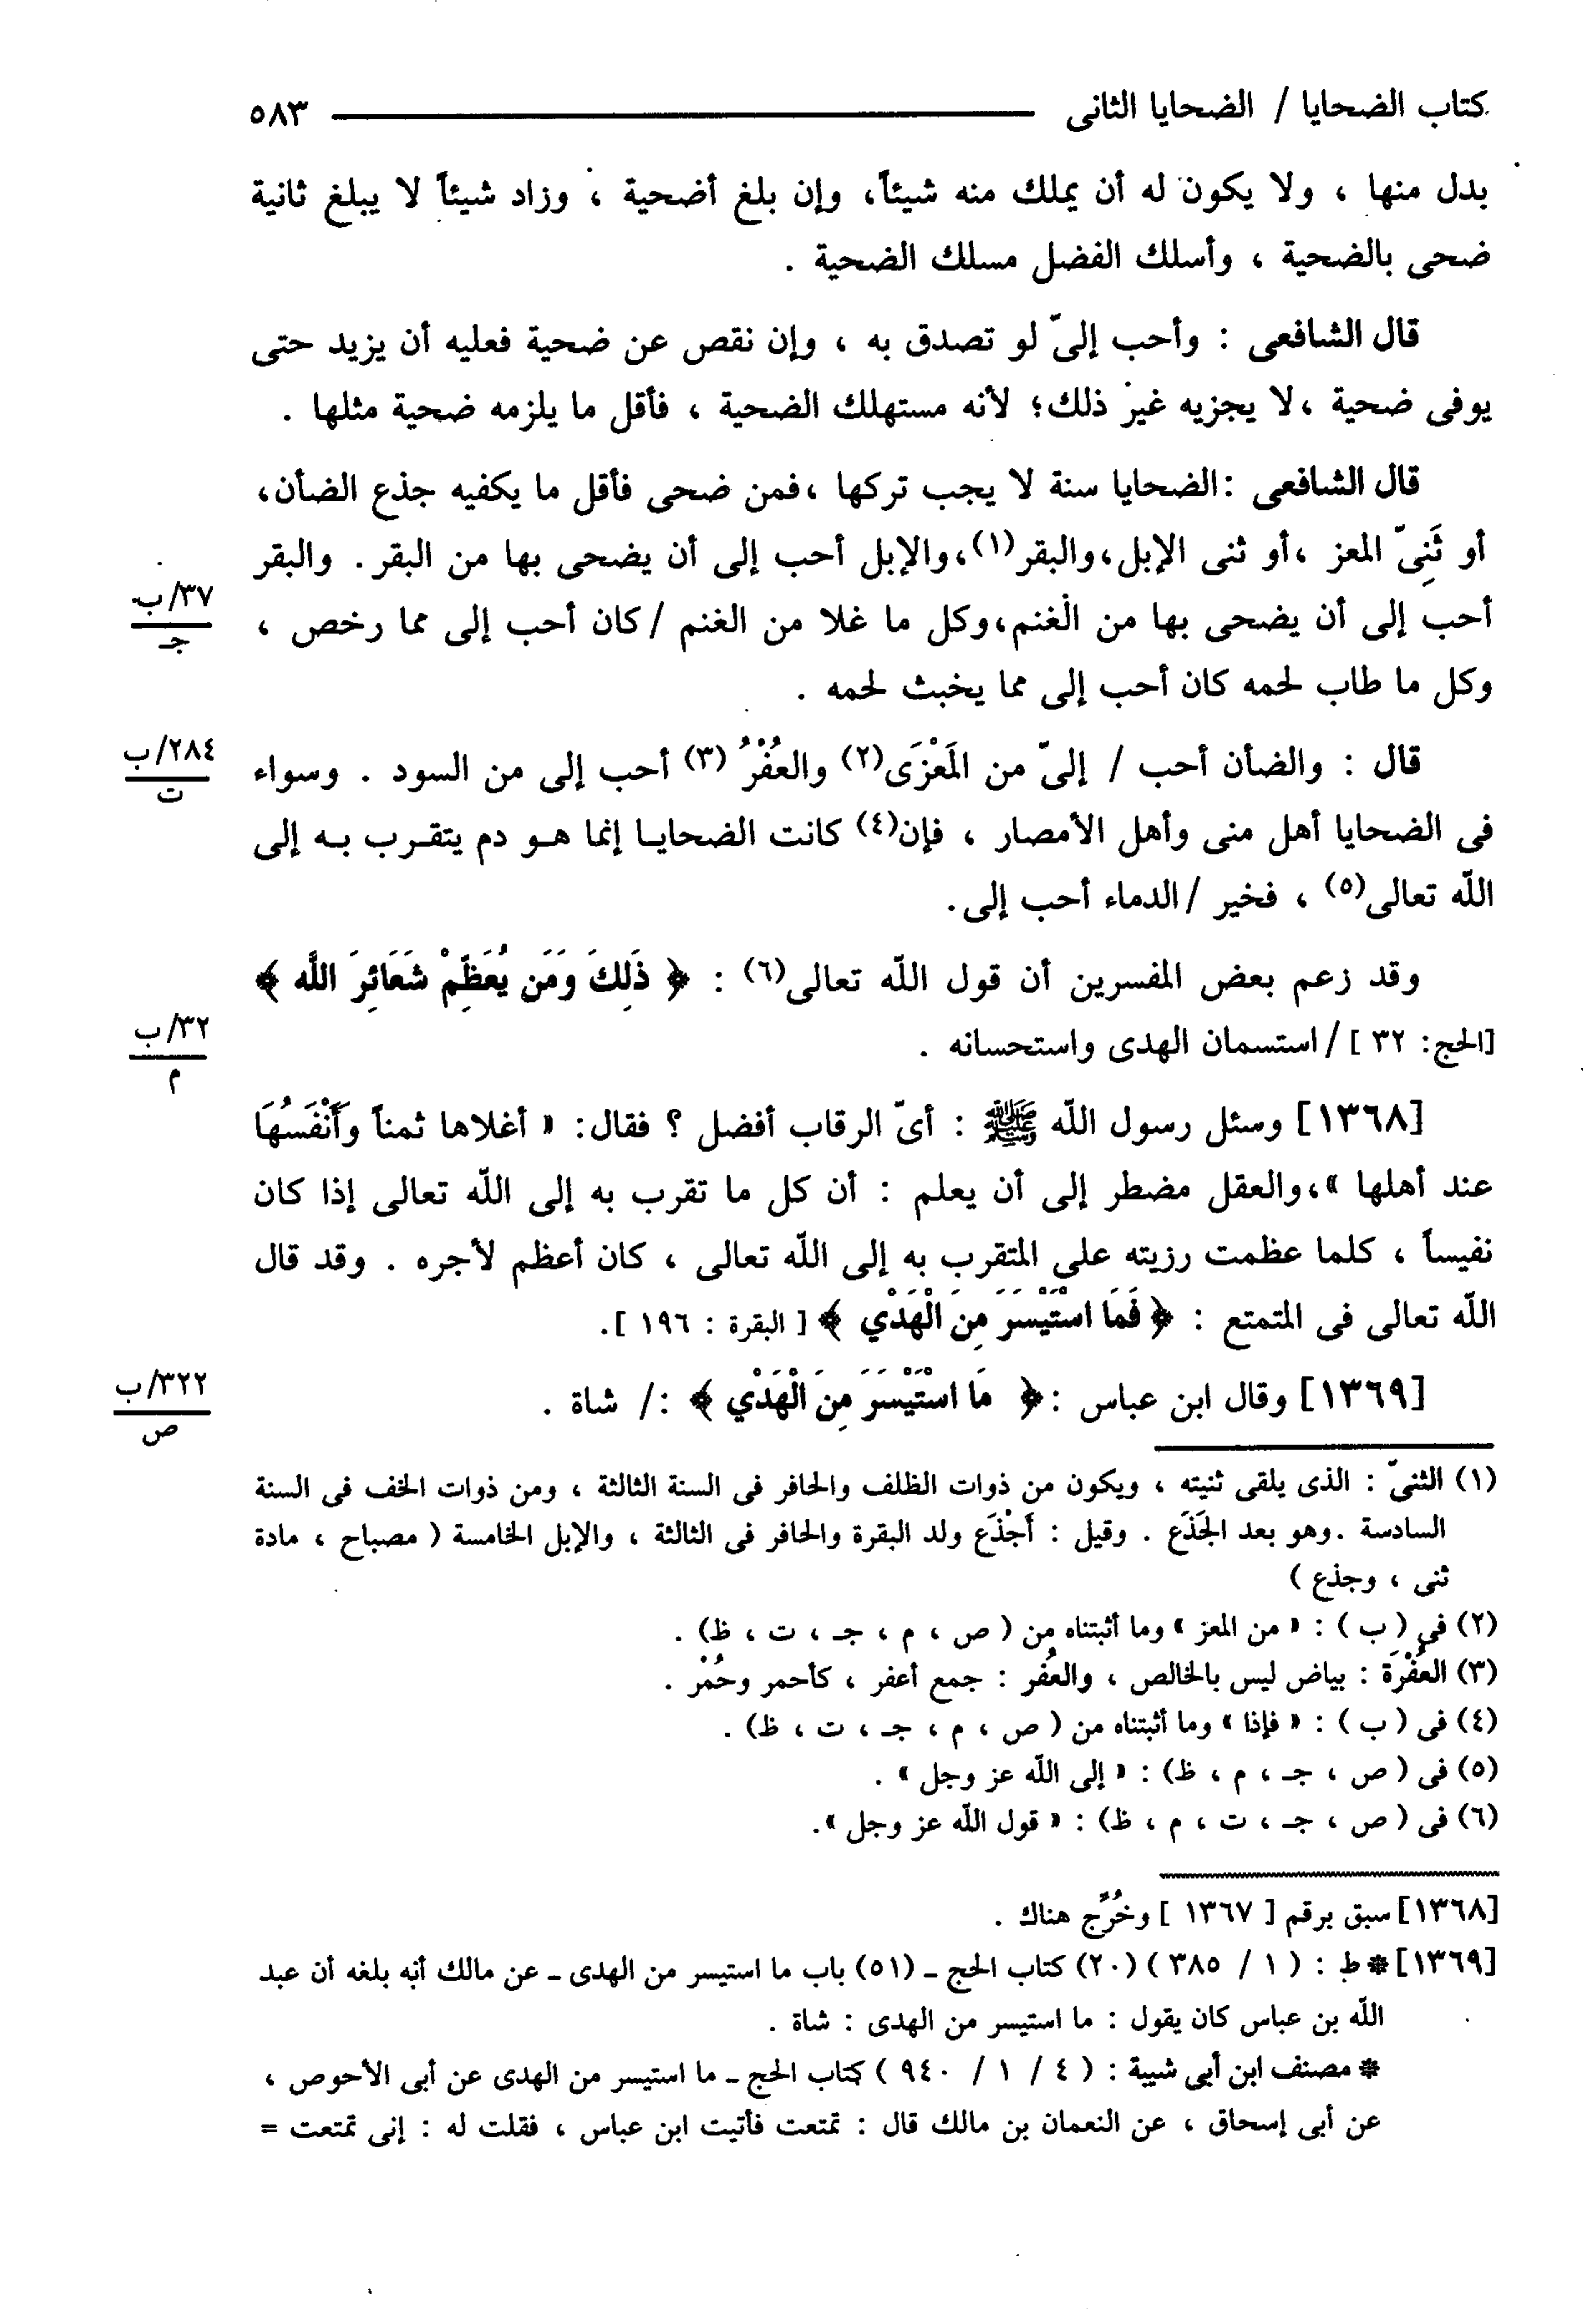 كتاب الضحايا / الضحايا الثانى ٥٨٣
بدل منها ، ولا يكون له أن يملك منه شيئاً، وإن بلغ أضحية ، وزاد شيئاً لا يبلغ ثانية
ضحى بالضحية ، وأسلك الفضل مسلك الضحية .
قال الشافعى : وأحب إلىّ لو تصدق به ، وإن نقص عن ضحية فعليه أن يزيد حتى
يوفى ضحية ،لا يجزيه غير ذلك؛ لأنه مستهلك الضحية ، فأقل ما يلزمه ضحية مثلها .
قال الشافعى :الضحايا سنة لا يجب تركها ،فمن ضحى فأقل ما يكفيه جذع الضأن،
أو ثَنِىّ المعز ،أو ثنى الإبل،والبقر(١)،والإبل أحب إلى أن يضحى بها من البقر. والبقر
٣٧/ب
أحب إلى أن يضحى بها من الغنم،وكل ما غلا من الغنم /كان أحب إلى مما رخص ،
جـ
وكل ما طاب لحمه كان أحب إلى مما يخبث لحمه .
٢٨٤/ب
قال : والضأن أحب / إلىّ من المَعْزَى(٢) والعُفْرُ (٣) أحب إلى من السود . وسواء
ت
فى الضحايا أهل منى وأهل الأمصار ، فإن(٤) كانت الضحايـا إنما هـو دم يتقـرب بـه إلى
الله تعالى(٥) ، فخير /الدماء أحب إلى.
وقد زعم بعض المفسرين أن قول الله تعالى(٦) : ﴿ ذَلِكَ وَمَن يُعَظِّمْ شَعَائِرَ اللَّه ﴾
٣٢/ب
[الحج: ٣٢ ] /استسمان الهدى واستحسانه .
م
[١٣٦٨] وسئل رسول الله ﷺ : أىّ الرقاب أفضل ؟ فقال: « أغلاها ثمناً وَأَنْفَسُهَا
عند أهلها »،والعقل مضطر إلى أن يعلم : أن كل ما تقرب به إلى الله تعالى إذا كان
نفيساً ، كلما عظمت رزيته على المتقرب به إلى الله تعالى ، كان أعظم لأجره . وقد قال
الله تعالى فى المتمتع : ﴿ فَمَا اسْتَيْسَرَ مِنَ الْهَدْيِ ﴾ [ البقرة : ١٩٦ ].
٣٢٢/ب
[١٣٦٩] وقال ابن عباس :﴿ مَا اسْتَيْسَرَ مِنَ الْهَدْيِ ﴾ :/ شاة .
ص
(١) الثنىّ : الذى يلقى ثنيته ، ويكون من ذوات الظلف والحافر فى السنة الثالثة ، ومن ذوات الخف فى السنة
السادسة .وهو بعد الجَذَع . وقيل : أَجْذَع ولد البقرة والحافر فى الثالثة ، والإبل الخامسة ( مصباح ، مادة
ثنى ، وجذع )
(٢) فى ( ب ) : « من المعز » وما أثبتناه من ( ص ، م ، جـ ، ت ، ظ) .
(٣) العُفْرَة : بياض ليس بالخالص ، والعُفر : جمع أعفر ، كأحمر وحُمْر .
(٤) فى ( ب ) : « فإذا » وما أثبتناه من ( ص ، م ، جـ ، ت ، ظ) .
(٥) فى ( ص ، جـ ، م ، ظ) : « إلى الله عز وجل » .
(٦) فى ( ص ، جـ ، ت ، م ، ظ) : « قول الله عز وجل ».
[١٣٦٨] سبق برقم [ ١٣٦٧ ] وخُرِّج هناك .
[١٣٦٩]* ط : ( ١ / ٣٨٥ ) (٢٠) كتاب الحج ـ (٥١) باب ما استيسر من الهدى ـ عن مالك أنه بلغه أن عبد
الله بن عباس كان يقول : ما استيسر من الهدى : شاة .
* مصنف ابن أبى شيبة : ( ٤ / ١ / ٩٤٠ ) كتاب الحج ـ ما استيسر من الهدى عن أبى الأحوص ،
عن أبى إسحاق ، عن النعمان بن مالك قال : تمتعت فأتيت ابن عباس ، فقلت له : إنى تمتعت =